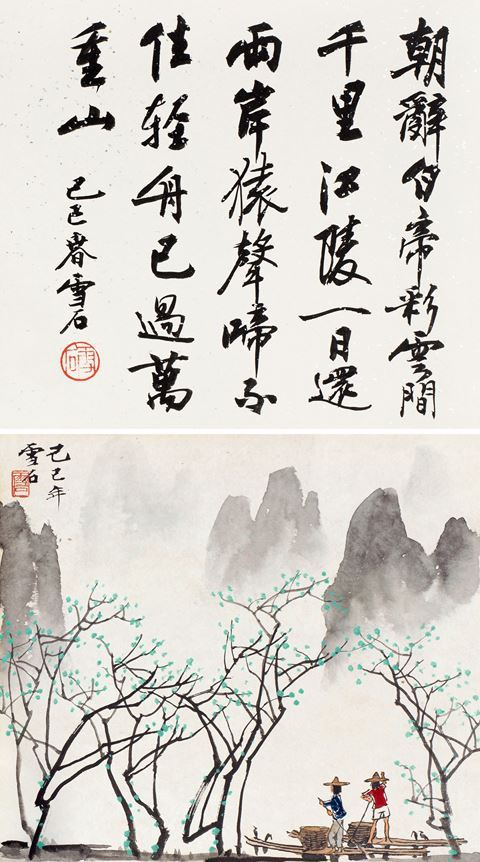 朝辭白帝彩雲間
千里江陵一日還
兩岸猿聲啼不
住輕舟已過萬
重山
己巳春雪石
己巳年
雪石